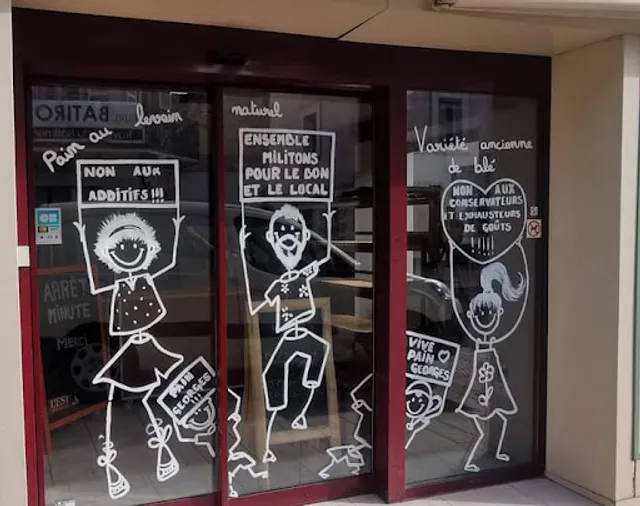 Pain au levain naturel
NON AUX
ADDITIFS !!!
ENSEMBLE
MILITONS
POUR LE BON
ET LE LOCAL
Variété ancienne
de blé
NON AUX
CONSERVATEURS
ET EXHAUSTEURS
DE GOÛTS
!!!!
BATIRO
ARRÊT
MINUTE
MERCI
PAIN
GEORGES
!!!
VIVE
PAIN
GEORGES